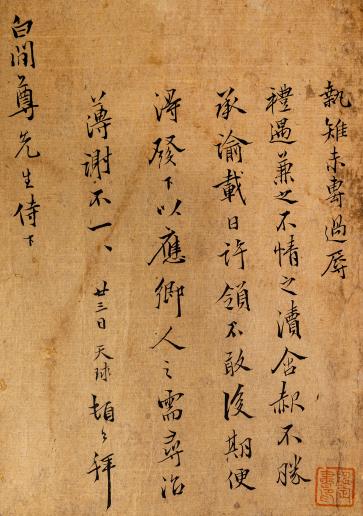 執雉未專過辱
禮遇兼之不情之瀆含赧不勝
承諭載日許領不敢後期便
得發下以應鄉人之需尋治
薄謝不一、廿三日天球頓々拜
白閒尊先生侍下